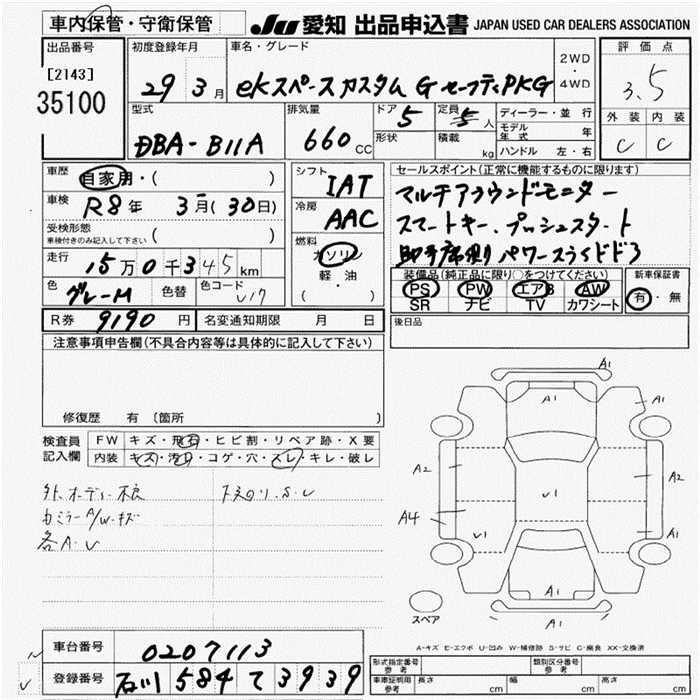 車内保管・守衛保管
JU 愛知 出品申込書 JAPAN USED CAR DEALERS ASSOCIATION
出品番号
[2143]
35100
初度登録年月
29 3月
車名・グレード
ekスペースカスタム G セーフティPKG
2WD
・
4WD
評価点
3.5
外装 内装
C C
型式
DBA-B11A
排気量
660 CC
ドア
5
形状
定員
人
積載
kg
ディーラー・並行
モデル年式 年
ハンドル 左・右
車歴
自家用・( )
車検
R8年 3月(30日)
受検形態
車検付きのみ記入して下さい ( )
走行
15万0千345km
色
グレーM
色替
色コード
U17
シフト
IAT
冷房
AAC
燃料
ガソリン
軽・油
( )
セールスポイント(正常に機能するものに限ります)
マルチアラウンドモニター
スマートキー、プッシュスタート
助手席側パワースライドドア
装備品(純正品に限り○をつけてください)
PS PW エアB AW
SR ナビ TV カワシート
新車保証書
有・無
R券 9190円
名変通知期限 月 日
後日品
注意事項申告欄(不具合内容等は具体的に記入して下さい)
修復歴 有(箇所 )
検査員
記入欄
FW キズ・飛石・ヒビ割・リペア跡・X要
内装 キズ・汚れ・コゲ・穴・スレ・キレ・破レ
外、ボディー不良
右ミラーA/W・キズ
各A・U
下廻り、S・U
A1
A1
A1
A2
A2
U1
A4
U1
A1
A1
A1
スペア
A-キズ E-エクボ U-凹み W-補修跡 S-サビ C-腐食 XX-交換済
車台番号
0207113
登録番号
石川 584 て 3939
形式指定番号
参考
類別区分番号
参考
車庫証明用
参考
長さ cm
幅 cm
高さ cm